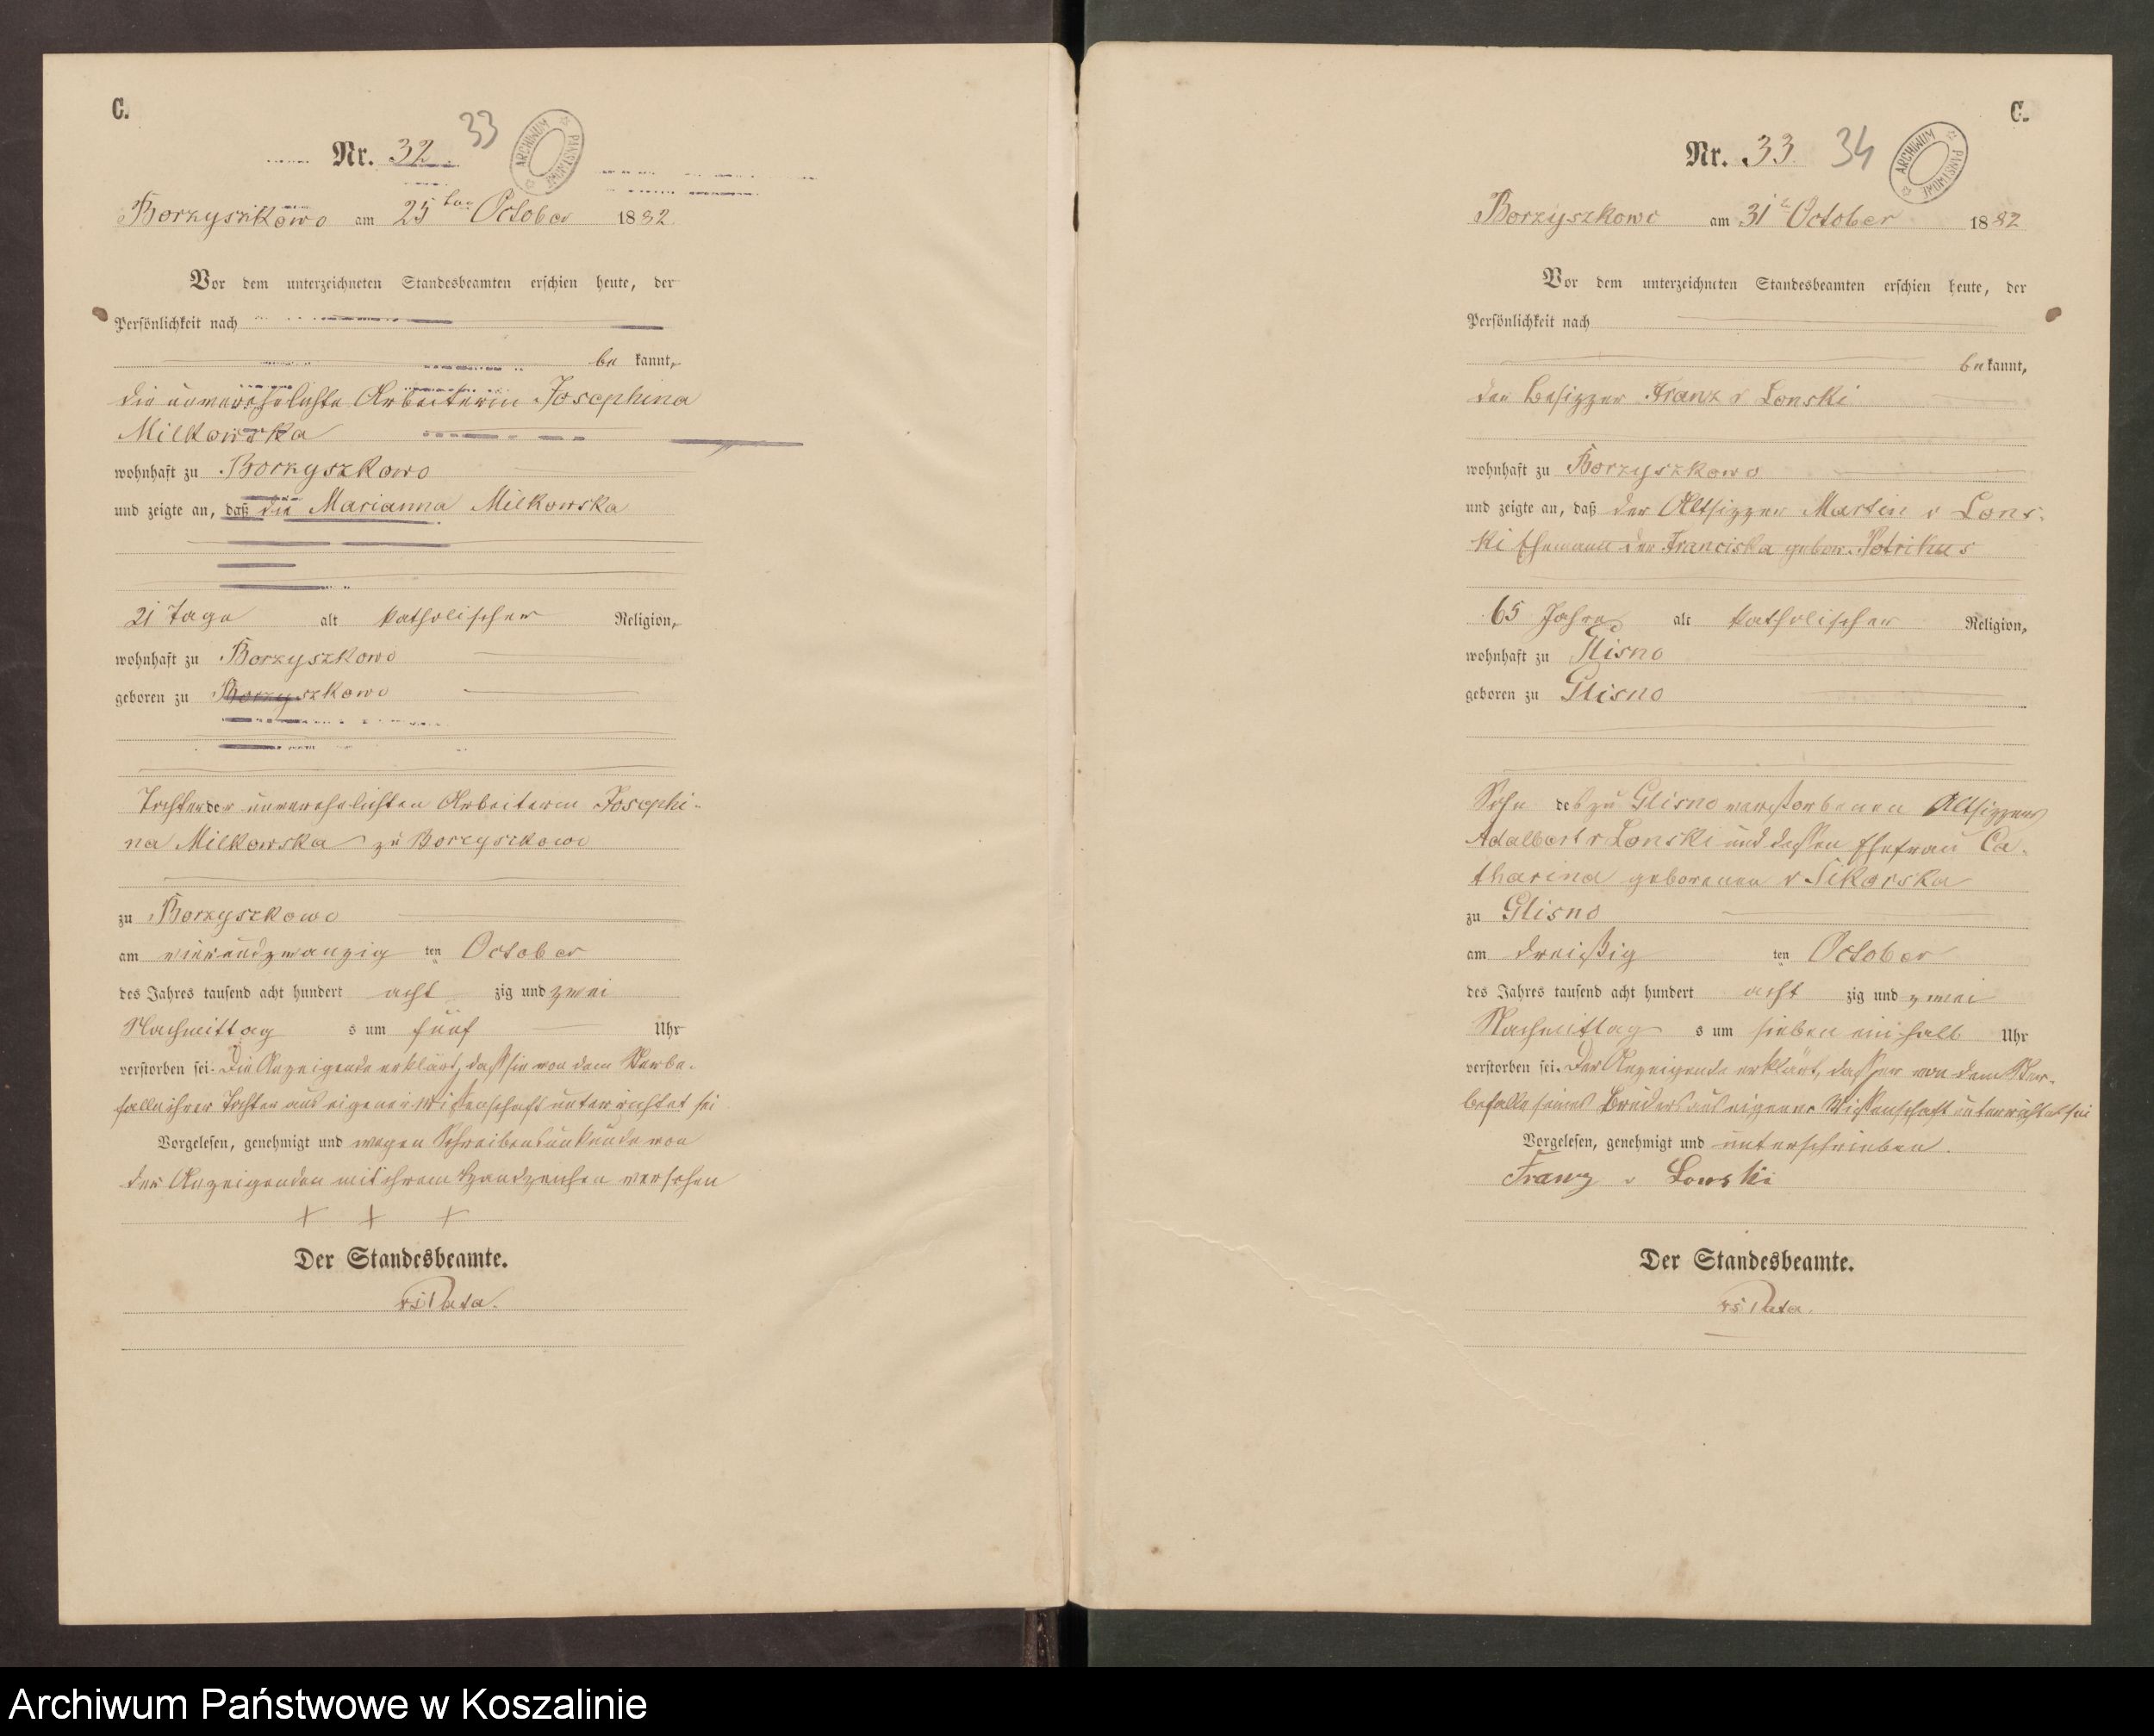 C.
Nr. 32. 33
ARCHIWUM PAŃSTWOWE
Borzyszkowo am 25 ten October 1882.
Vor dem unterzeichneten Standesbeamten erschien heute, der
Persönlichkeit nach
be kannt,
die unverehelichte Arbeiterin Josephina
Milkowska
wohnhaft zu Borzyszkowo
und zeigte an, daß die Marianna Milkowska
21 Tage alt katholischer Religion,
wohnhaft zu Borzyszkowo
geboren zu Borzyszkowo
Tochter der unverehelichten Arbeiterin Josephi-
na Milkowska zu Borzyszkowo
zu Borzyszkowo
am vierundzwanzig ten October
des Jahres tausend acht hundert acht zig und zwei
Nachmittag s um fünf Uhr
verstorben sei. Die Anzeigende erklärt, daß sie von dem Verbe-
falle ihrer Tochter aus eigener Wissenschaft unterrichtet sei
Vorgelesen, genehmigt und wegen Schreibensunkunde von
der Anzeigenden mit ihrem Handzeichen versehen
+ + +
Der Standesbeamte.
C.
Nr. 33. 34
ARCHIWUM PAŃSTWOWE
Borzyszkowo am 31 October 1882
Vor dem unterzeichneten Standesbeamten erschien heute, der
Persönlichkeit nach
be kannt,
der Besizzer Franz v Lonski
wohnhaft zu Borzyszkowo
und zeigte an, daß der Altsizzer Martin v Lons-
ki Ehemann der Franciska gebor. Potrikus
65 Jahre alt katholischer Religion,
wohnhaft zu Glisno
geboren zu Glisno
Sohn des zu Glisno verstorbenen Altsizzers
Adalbert v Lonski und dessen Ehefrau Ca-
tharina geborenen v Sikorska
zu Glisno
am dreißig ten October
des Jahres tausend acht hundert acht zig und zwei
Nachmittag s um sieben ein halb Uhr
verstorben sei. Der Anzeigende erklärt, daß er von dem Ver-
befalle seines Bruders aus eigener Wissenschaft unterrichtet sei
Vorgelesen, genehmigt und unterschrieben.
Franz v Lonski
Der Standesbeamte.
Archiwum Państwowe w Koszalinie